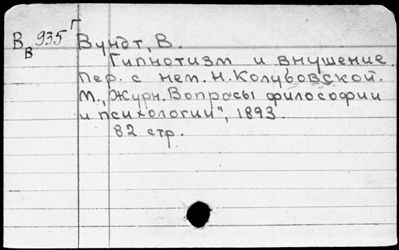 В 935 Г Вундт, В.
в Гипнотизм и внушение.
Пер. с нем. Н. Колубовской.
М., "Журн. Вопросы философии
и психологии", 1893.
82 стр.